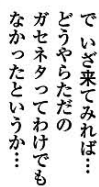 で いざ来てみれば…
どうやらただの
ガセネタってわけでも
なかったというか…